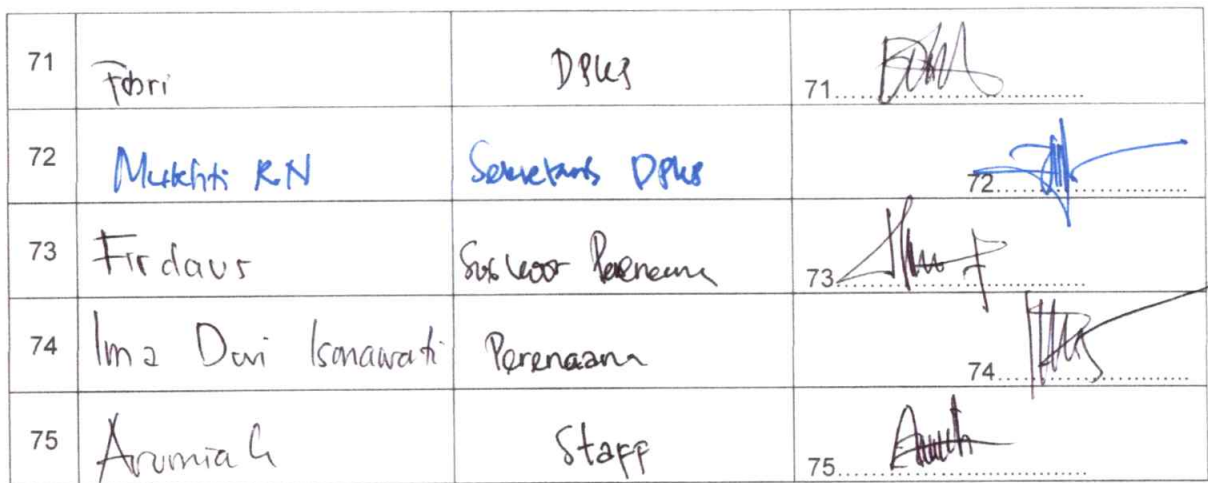 71 Febri DPKP 71
72 Mukhti RN Sekretaris DPKP 72
73 Firdaus Subkoor Perencana 73
74 Ima Dwi Isnawati Perencaan 74
75 Arumiah Stapp 75